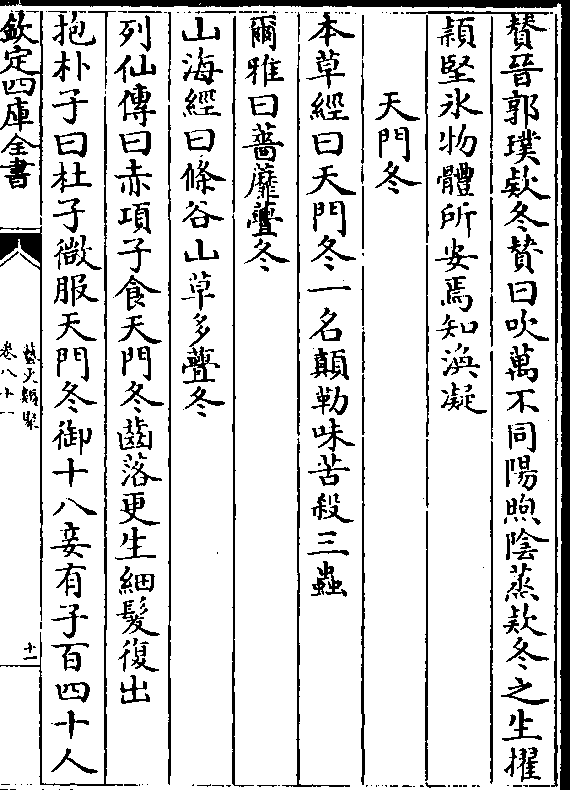 贊晉郭璞款冬贊曰吹萬不同陽煦陰蒸款冬之生擢
穎堅氷物體所安焉知渙凝
天門冬
本草經曰天門冬一名顛勒味苦殺三蟲
爾雅曰薔蘼虋冬
山海經曰條谷山草多虋冬
列仙傳曰赤項子食天門冬齒落更生細髮復出
抱朴子曰杜子微服天門冬御十八妾有子百四十人
欽定四庫全書
藝文類聚
卷八十一
十一